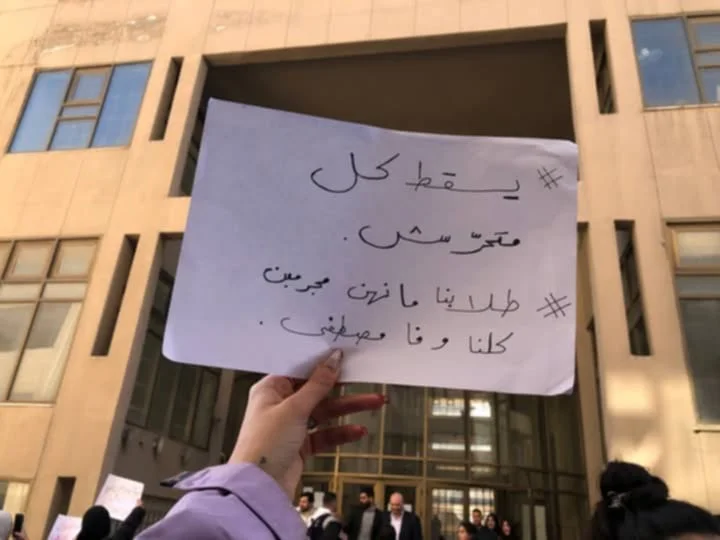 # يسقط كل
متحرّش.
# طلابنا مانهن مجرمين
كلنا وفا مصطفى.